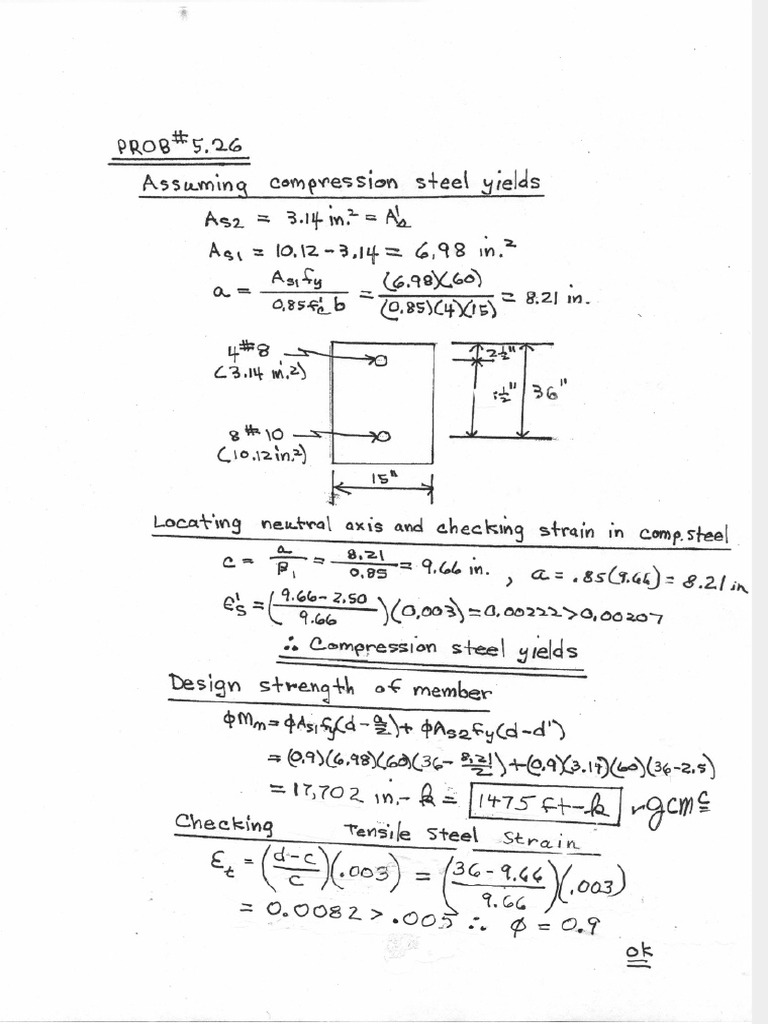 PROB # 5.26
Assuming compression steel yields
As2 = 3.14 in.² = A's
As1 = 10.12 - 3.14 = 6.98 in.²
a = As1 fy / 0.85 f'c b = (6.98)(60) / (0.85)(4)(15) = 8.21 in.
4 #8
(3.14 in.²)
2½"
½"
36"
8 #10
(10.12 in.²)
15"
Locating neutral axis and checking strain in comp. steel
c = a / β1 = 8.21 / 0.85 = 9.66 in. , a = .85(9.66) = 8.21 in
ε's = (9.66 - 2.50 / 9.66)(0.003) = 0.00222 > 0.00207
∴ Compression steel yields
Design strength of member
φMn = φAs1 fy (d - a/2) + φAs2 fy (d - d')
= (0.9)(6.98)(60)(36 - 8.21/2) + (0.9)(3.14)(60)(36 - 2.5)
= 17,702 in.-k = 1475 ft-k
Checking Tensile Steel Strain
εt = (d - c / c)(.003) = (36 - 9.66 / 9.66)(.003)
= 0.0082 > .005 ∴ φ = 0.9
ok